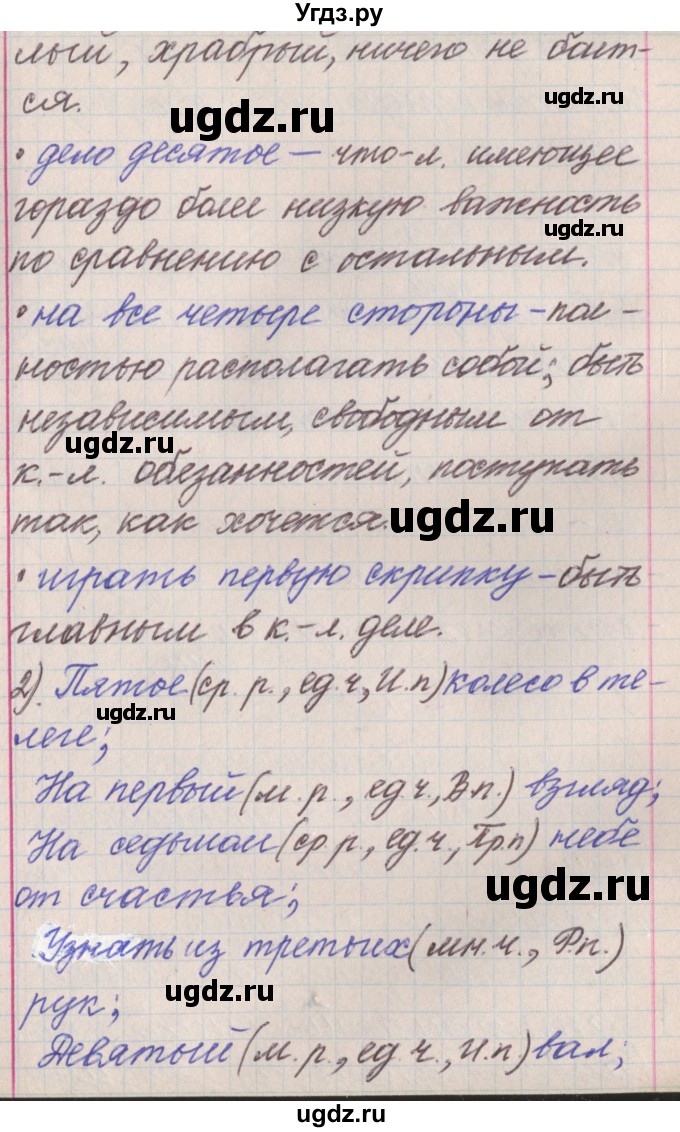 Угдз.ру
лый, храбрый, ничего не боит-
ся.
ugdz.ru
ugdz.ru
• дело десятое – что-л. имеющее
гораздо более низкую важность
ugdz.ru
ugdz.ru
по сравнению с остальным.
• на все четыре стороны - пол-
ностью располагать собой; быть
независимым, свободным от
ugdz.ru
к.-л. обезанностей, поступать
так, как хочется.
ugdz.ru
• играть первую скрипку - быть
главным в к.-л. деле.
ugdz.ru
2). Пятое (ср. р., ед. ч, И.п) колесо в те-
ugdz.ru
леге;
На первый (м. р., ед ч., В.п.) взгляд;
На седьмом (ср р., ед. ч., Пр.п) небе
ugdz.ru
от счастья;
Узнать из третьих (мн. ч., Р.п.)
ugdz.ru
рук;
Девятый (м. р., ед. ч., И.п) вал;
ugdz.ru